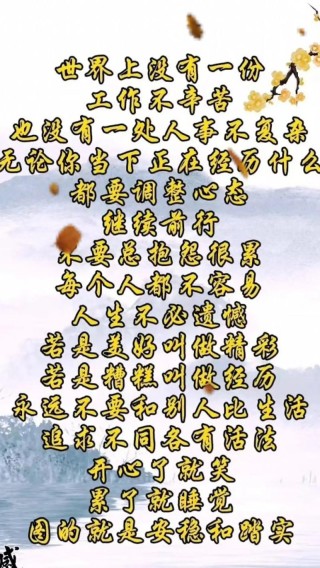 世界上没有一份
工作不辛苦
也没有一处人事不复杂
无论你当下正在经历什么
都要调整心态
继续前行
不要总抱怨很累
每个人都不容易
人生不必遗憾
若是美好叫做精彩
若是糟糕叫做经历
永远不要和别人比生活
追求不同各有活法
开心了就笑
累了就睡觉
图的就是安稳和踏实
感